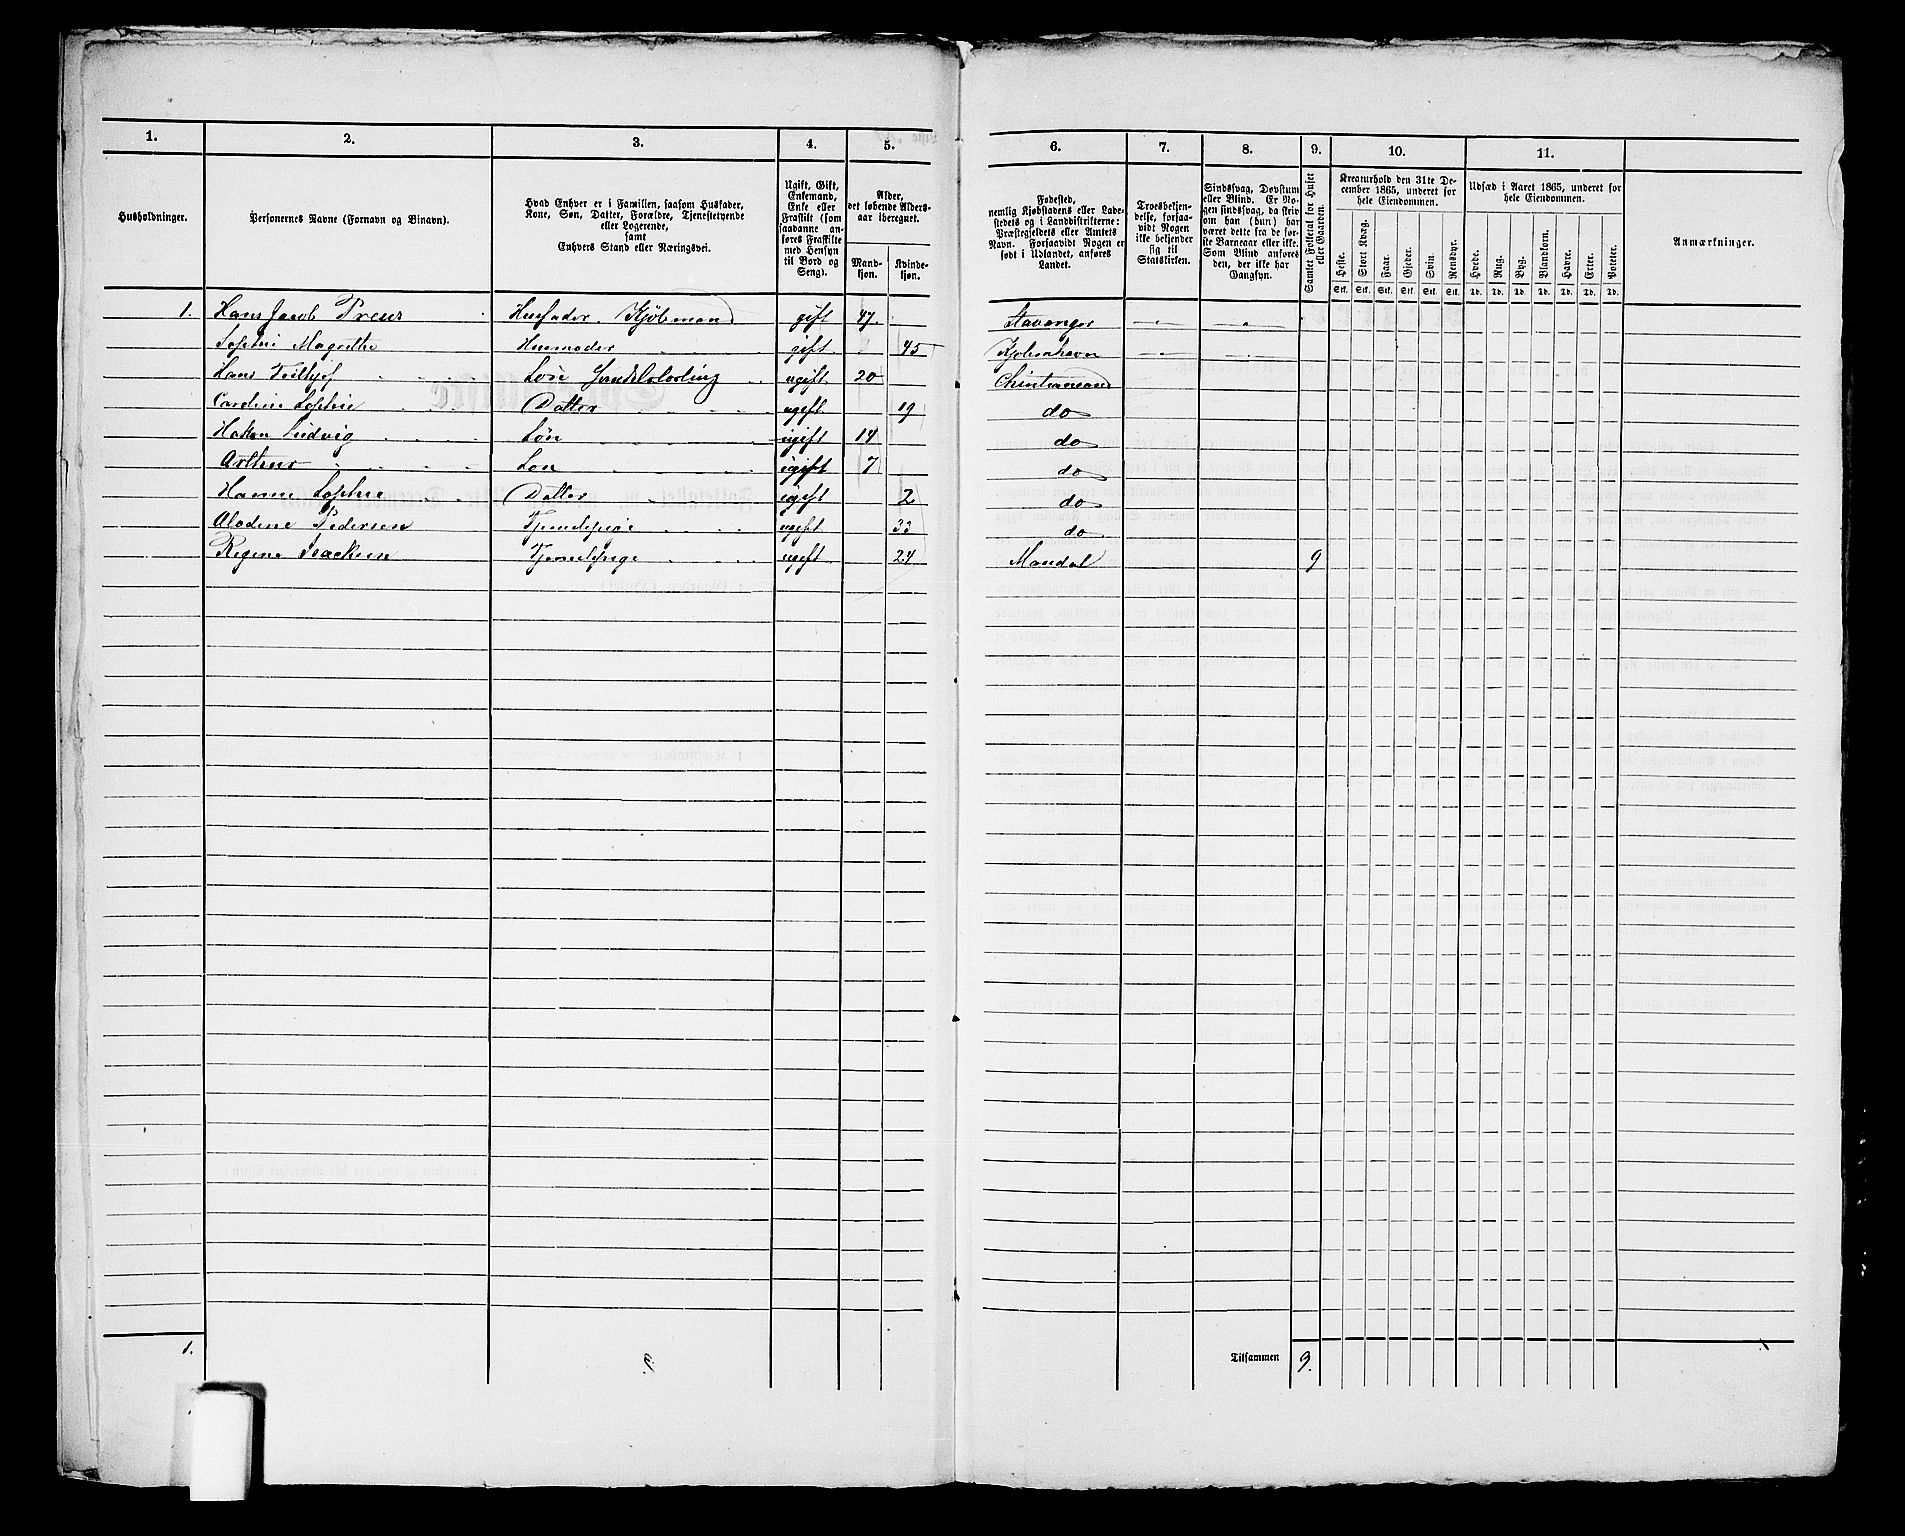 1. 2. 3. 4. 5. 6. 7. 8. 9. 10. 11.
Husholdninger.
Personernes Navne (Fornavn og Binavn).
Hvad Enhver er i Familien, saasom Husfader, Kone, Søn, Datter, Forældre, Tjenestetyende eller Logerende, samt Enhvers Stand eller Næringsvei.
Ugift, Gift, Enkemand, Enke eller Fraskilt (som saadanne anføres Fraskilte med Hensyn til Bord og Seng).
Alder, det løbende Aldersaar iberegnet.
Mandkjøn. Kvindekjøn.
Fødested, nemlig Kjøbstadens eller Ladestedets og i Landdistrikterne: Præstegjeldets eller Amtets Navn. Forsaavidt Nogen er født i Udlandet, anføres Landet.
Troesbekjendelse, forsaavidt Nogen ikke bekjender sig til Statskirken.
Sindssvag, Døvstum eller Blind. Er Nogen sindssvag, da skrives om han (hun) har været dette fra de første Barneaar eller ikke. Som Blind anføres den, der ikke har Gangsyn.
Samlet Folketal for Huset eller Gaarden.
Kreaturhold den 31te December 1865, underet for hele Eiendommen.
Heste. Stort Kvæg. Faar. Gjeder. Svin. Rensdyr.
Stk. Stk. Stk. Stk. Stk. Stk.
Udsæd i Aaret 1865, underet for hele Eiendommen.
Hvede. Rug. Byg. Blandkorn. Havre. Erter. Poteter.
Td. Td. Td. Td. Td. Td. Td.
Anmærkninger.
1. Hans Jacob Preus Husfader. Kjøbmand gift 47. Stavanger
Sophie Magrethe Husmoder gift 45 Kjøbenhavn
Hans ugift 20 Christiansand
Caroline Sophie Datter ugift 19 do
Hakon Ludvig Søn ugift 14 do
Søn ugift 7 do
Hanne Sophie Datter ugift 2 do
Pedersen Tjenestepige ugift 33 do
Regine Isaksen Tjenestepige ugift 24 Mandal 9
1. 9. Tilsammen 9.